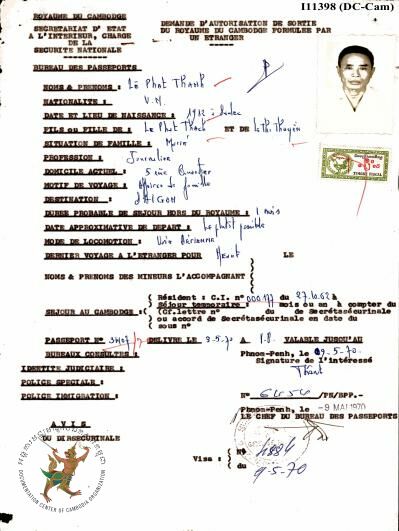 I11398 (DC-Cam)
ROYAUME DU CAMBODGE
SECRETARIAT D'ETAT
A L'INTERIEUR, CHARGE
DE LA
SECURITE NATIONALE
DEMANDE D'AUTORISATION DE SORTIE
DU ROYAUME DU CAMBODGE FORMULEE PAR
UN ETRANGER
BUREAU DES PASSEPORTS
NOMS & PRENOMS : Lê Phat Thanh
NATIONALITE : V.N.
DATE ET LIEU DE NAISSANCE : 1912 à
FILS ou FILLE DE : Le Phat Thach ET DE
SITUATION DE FAMILLE : Marié
PROFESSION : Journaliste
DOMICILE ACTUEL : 5 ème Quartier
MOTIF DE VOYAGE : Affaires de famille
DESTINATION : SAIGON
DUREE PROBABLE DE SEJOUR HORS DU ROYAUME : 1 mois
DATE APPROXIMATIVE DE DEPART : Le plutôt possible
MODE DE LOCOMOTION : Voie Aérienne
DERNIER VOYAGE A L'ETRANGER POUR Néant LE
NOMS & PRENOMS DES MINEURS L'ACCOMPAGNANT
Résident : C.I. n° 000177 du 27.10.62 à
Séjour temporaire : mois ou an à compter du
SEJOUR AU CAMBODGE : (Cf.lettre n° du de Secrétasécurinale
ou accord de Secrétasécurinale en date du
sous n°
PASSEPORT N° DELIVRE LE 8-5-70 A VALABLE JUSQU'AU
BUREAUX CONSULTES :
Phnom-Penh, le 09-5-70.
Signature de l'intéressé
Thanh
IDENTITE JUDICIAIRE :
POLICE SPECIALE :
POLICE IMMIGRATION :
N° 6454 /PN/BPP.-
Phnom-Penh, le -9 MAI 1970
LE CHEF DU BUREAU DES PASSEPORTS
A V I S
DU DIRSECURINALE
Visa :
N° 4884
du 9-5-70
DOCUMENTATION CENTER OF CAMBODIA ORGANIZATION
TIMBRE FISCAL